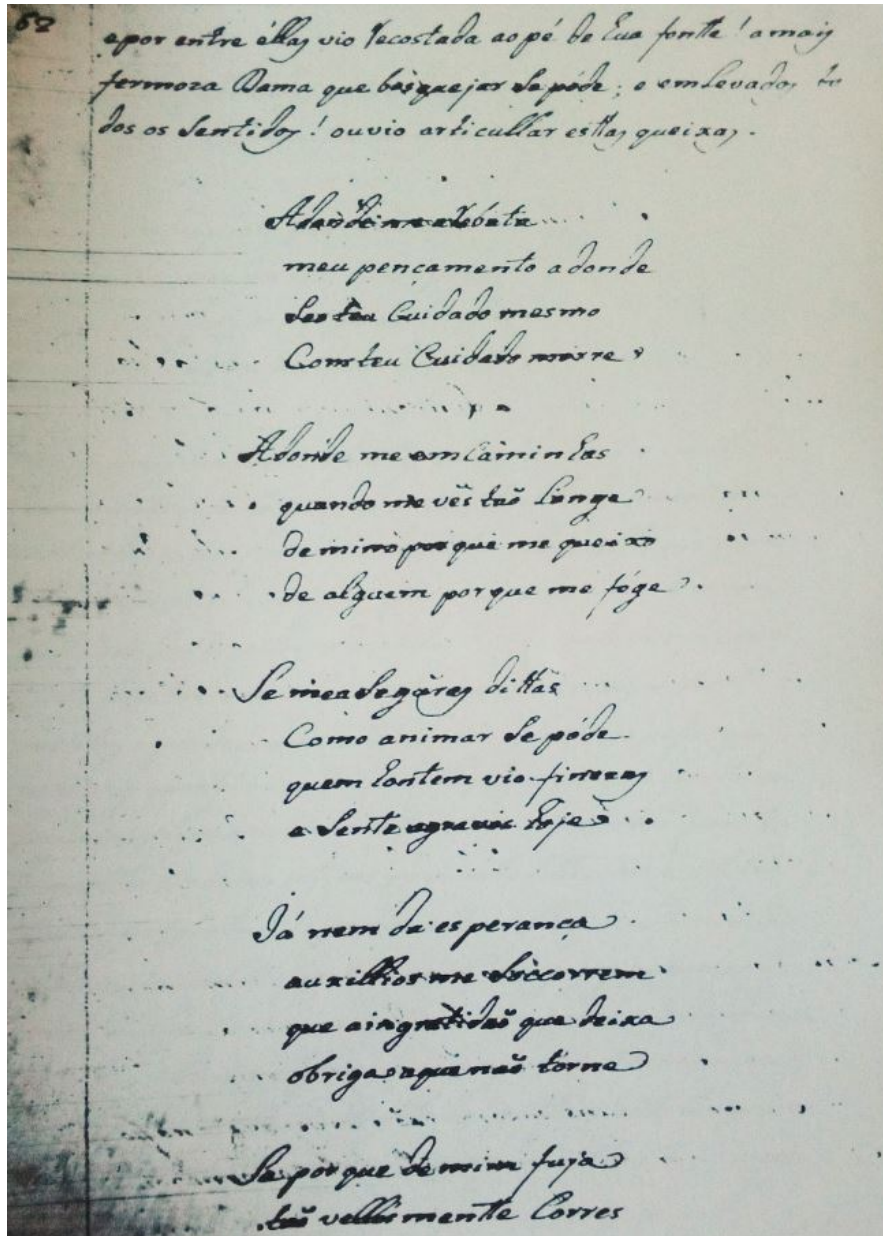 62
e por entre éllas vio Recostada ao pé de hua fontte! a mais
fermoza Dama que bosquejar se póde; e emlevados to
dos os sentidos! ouvio articullar esttas queixas.
Adonde me
meu pençamento adonde
se o teu Cuidado mesmo
Com teu Cuidado morre
Adonde me emCaminhas
quando me vês taõ Longe
de mim porque me queixo
de alguem porque me fóge
Se me a Segúras dittas
Como animar se póde
quem hontem vio finezas
e sente agravos hoje
Já nem da esperança
auxillios me soccorrem
que a ingratidaõ que deixa
obriga a que naõ torne
Se porque de mim fuja
taõ vellósmentte Corres